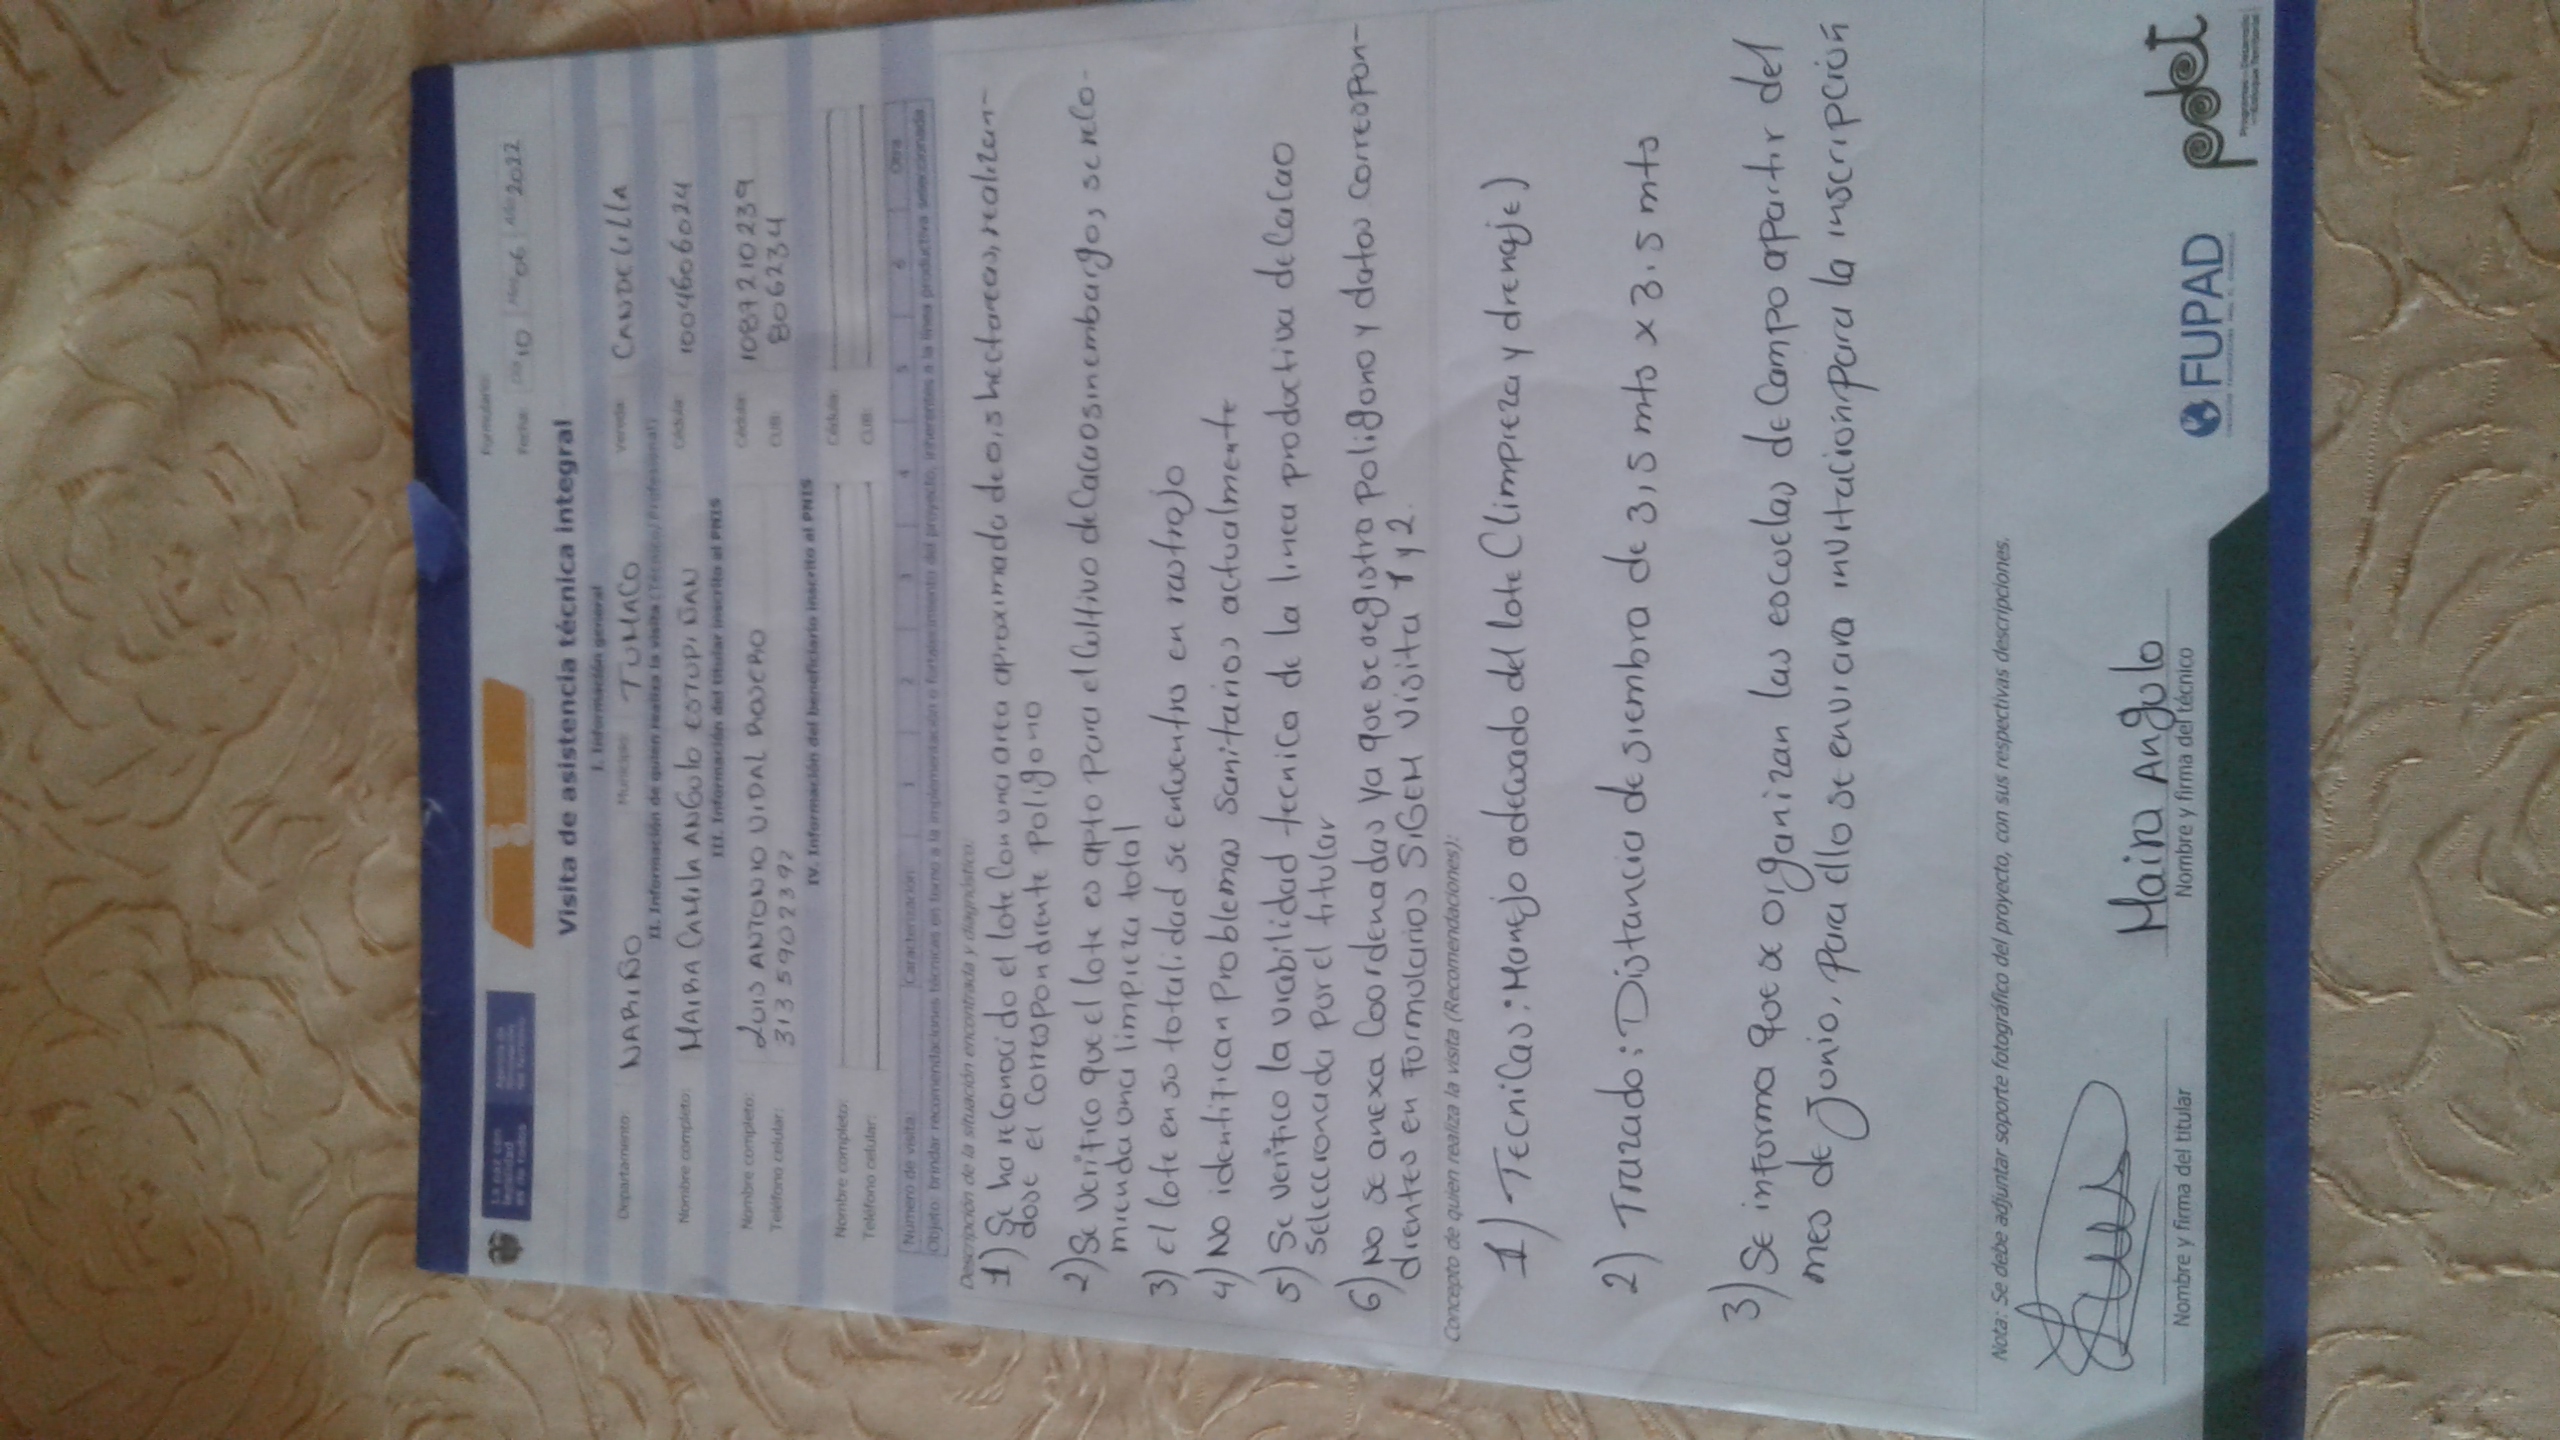 La paz con
legalidad
es de todos
Agencia de
Renovación
del Territorio
Formulario:
Fecha: Día 10 Mes 06 Año 2022
Visita de asistencia técnica integral
I. Información general
Departamento: NARIÑO Municipio: TUMACO Vereda: CANDELILLA
II. Información de quien realiza la visita (Técnico/Profesional)
Nombre completo: MAIRA CAMILA ANGULO ESTUPIÑAN Cédula: 1004606024
III. Información del titular inscrito al PNIS
Nombre completo: LUIS ANTONIO VIDAL Cédula: 1087210239
Teléfono celular: 3135902397 CUB: 8062334
IV. Información del beneficiario inscrito al PNIS
Nombre completo: Cédula:
Teléfono celular: CUB:
Número de visita: Caracterización: 1 2 3 4 5 6 Otra
Objeto: brindar recomendaciones técnicas en torno a la implementación o fortalecimiento del proyecto, inherentes a la línea productiva seleccionada
Descripción de la situación encontrada y diagnóstico:
1) Se ha reconocido el lote con una area aproximada de 0,5 hectareas, realizan-
dose el correspondiente Poligono
2) Se verifico que el lote es apto para el cultivo de Cacao sin embargo, se reco-
mienda una limpieza total
3) El lote en su totalidad se encuentra en rastrojo
4) No identifican Problemas sanitarios actualmente
5) Se verifico la viabilidad tecnica de la linea productiva de Cacao
seleccionada por el titular
6) No se anexa Coordenadas ya que se registro poligono y datos correspon-
dientes en Formularios SIGEM visita 1 y 2.
Concepto de quien realiza la visita (Recomendaciones):
1) Tecnicas: Manejo adecuado del lote (limpieza y drenaje)
2) Trazado: Distancia de siembra de 3,5 mts x 3,5 mts
3) Se informa que se organizan las escuelas de Campo apartir del
mes de Junio, para ello se enviara invitación para la inscripción
Nota: Se debe adjuntar soporte fotográfico del proyecto, con sus respectivas descripciones.
Maira Angulo
Nombre y firma del titular Nombre y firma del técnico
FUPAD
pdet
Programas de Desarrollo
con Enfoque Territorial